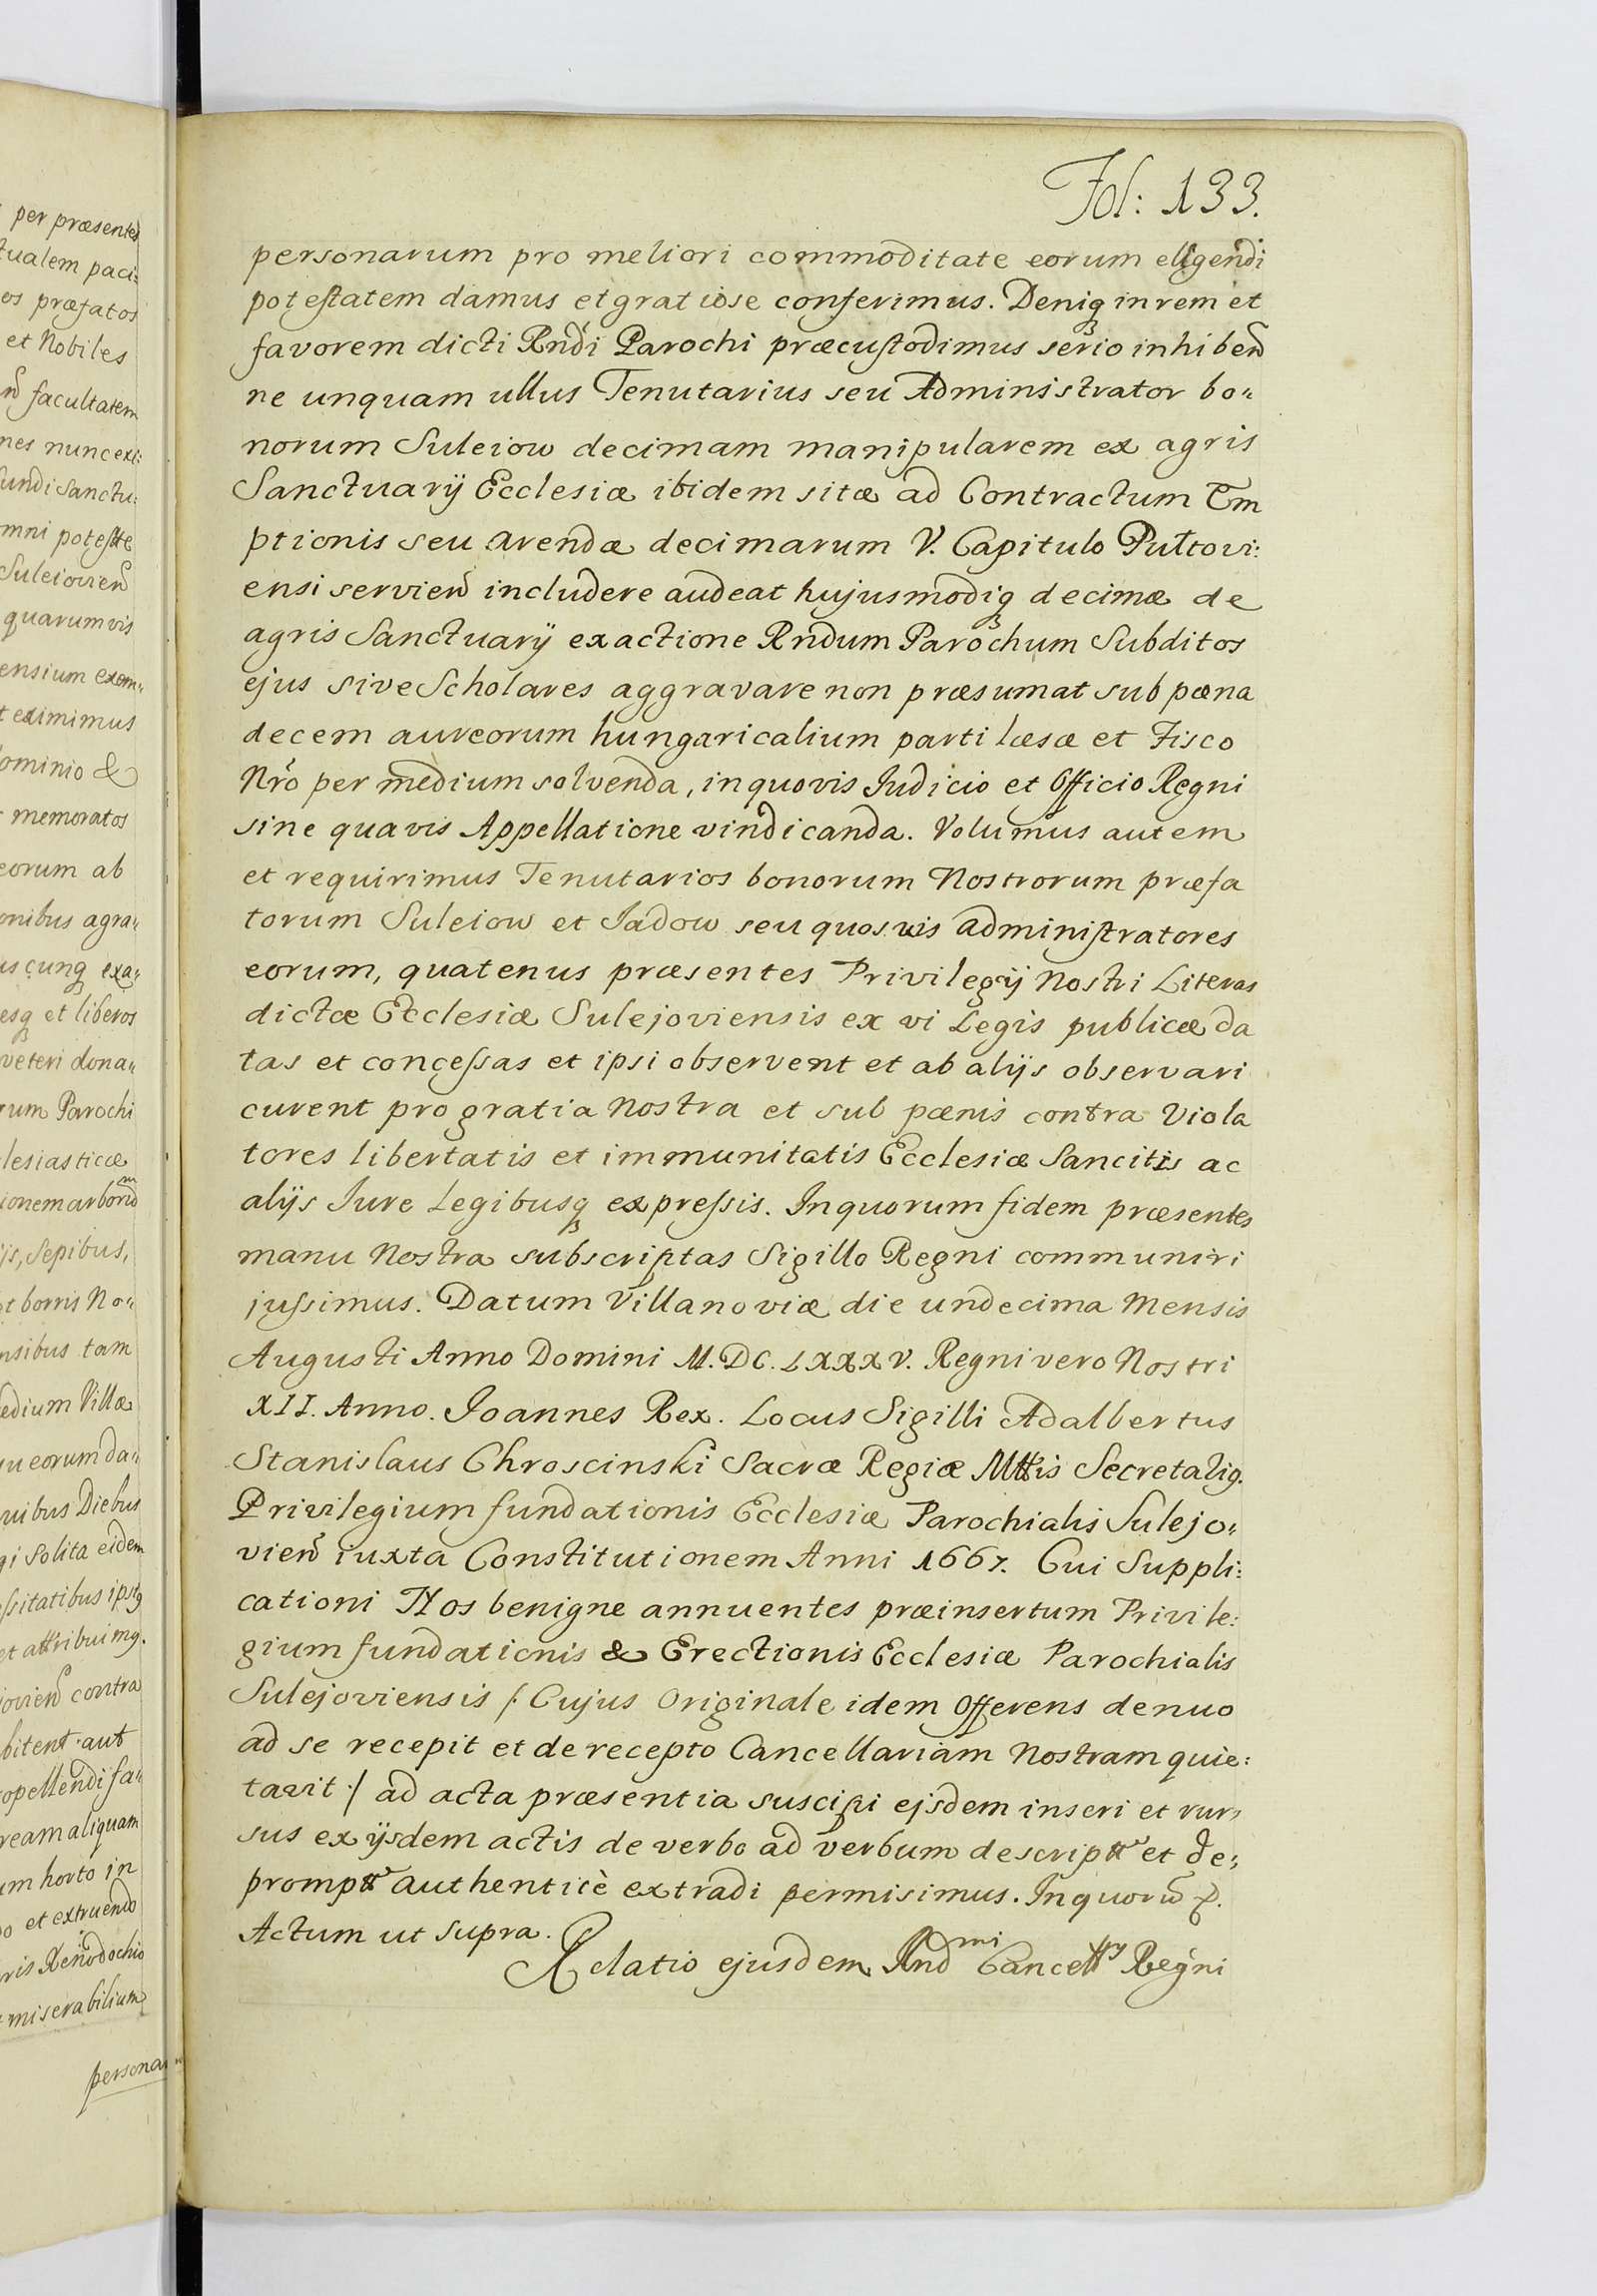 per præsentes
tualem paci:
os præfatos
et Nobiles
facultatem
nes nunc exi:
undi Sanctu:
mni potestte
Suleiovien
quarumvis
ensium exem„
t eximimus
ominio &
memoratos
eorum ab
onibus agra„
uscunq exa„
esq et liberos
veteri dona„
rum Parochi
lesiasticæ
ionem arborum
ijs, Sepibus,
et borris No„
nsibus tam
edium Villæ
eorum da„
uibus Diebus
gi Solita eidem
essitatibus ipsig
et attribuimg.
jovien contra
bitent aut
opellendi fa„
ream aliquam
um horto in
o et extruendo
ris Xenodochio
miserabilium
persona
Fol: 133.
personarum pro meliori commoditate eorum elligendi
potestatem damus et gratiose conferimus. Deniq in rem et
favorem dicti Rndi Parochi præcustodimus serio inhiben
ne unquam ullus Tenutarius seu Administrator bo„
norum Suleiow decimam manipularem ex agris
Sanctuarij Ecclesiæ ibidem sitæ ad Contractum Em
ptionis seu arendæ decimarum V. Capitulo Pultovi:
ensi servien includere audeat hujusmodiq decimæ de
agris Sanctuarij exactione Rndum Parochum Subditos
ejus sive Scholares aggravare non præsumat sub pæna
decem aureorum hungaricalium parti læsæ et Fisco
Nro per medium solvenda, in quovis Judicio et Officio Regni
sine quavis Appellatione vindicanda. Volumus autem
et requirimus Tenutarios bonorum Nostrorum præfa
torum Suleiow et Jadow seu quosvis administratores
eorum, quatenus præsentes Privilegij Nostri Literas
dictæ Ecclesiæ Sulejoviensis ex vi Legis publicæ da
tas et concessas et ipsi observent et ab alijs observari
curent pro gratia Nostra et sub pænis contra Viola
tores libertatis et immunitatis Ecclesiæ Sancitis ac
alijs Iure Legibusq expressis. In quorum fidem præsentes
manu Nostra subscriptas Sigillo Regni communiri
jussimus. Datum Villanoviæ die undecima Mensis
Augusti Anno Domini M.DC.LXXXV. Regni vero Nostri
XII. Anno. Joannes Rex. Locus Sigilli Adalbertus
Stanislaus Chroscinski Sacræ Regiæ Mttis Secretalig.
Privilegium fundationis Ecclesiæ Parochialis Sulejo„
vien iuxta Constitutionem Anni 1667. Cui Suppli:
cationi Nos benigne annuentes præinsertum Privile:
gium fundationis & Erectionis Ecclesiæ Parochialis
Sulejoviensis /. Cujus Originale idem Offerens denuo
ad se recepit et de recepto Cancellariam Nostram quie:
tavit ./ ad acta præsentia suscipi ejsdem inseri et rur„
sus ex ijsdem actis de verbo ad verbum descriptt et de„
promptt authenticè extradi permisimus. In quorũ &.
Actum ut supra.
Relatio ejusdem Rndmi Cancellrij Regni